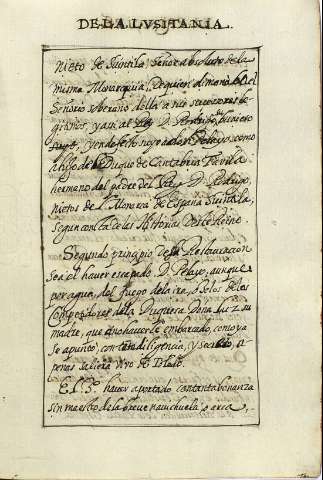 DE LA LVSITANIA.
nieto de Suintila, Señor absoluto de la
misma Monarquia, de quien dimanò el
Señorio soberano della a sus sucessores
y assi al Rey D. Rodrigo,
como
a hijo del Duque de Cantabria Favila
hermano del padre del Rey D. Rodrigo,
nietos del Monarca de España Suintila,
segun consta de las Historias deste Reino.
Segundo principio de la Restauracion
sea el haver escapado D. Pelayo, aunque
por agua, del fuego de la ira, o zelos de los
Competidores de la Duquesa Doña Luz su
madre, que a no haverle embarcado, como ya
se apuntò, con tanta diligencia, y secreto, a
penas saliera vivo de Toledo.
El 3º haver aportado con tanta bonanza
sin maestro de la breve navichuela, o arca,